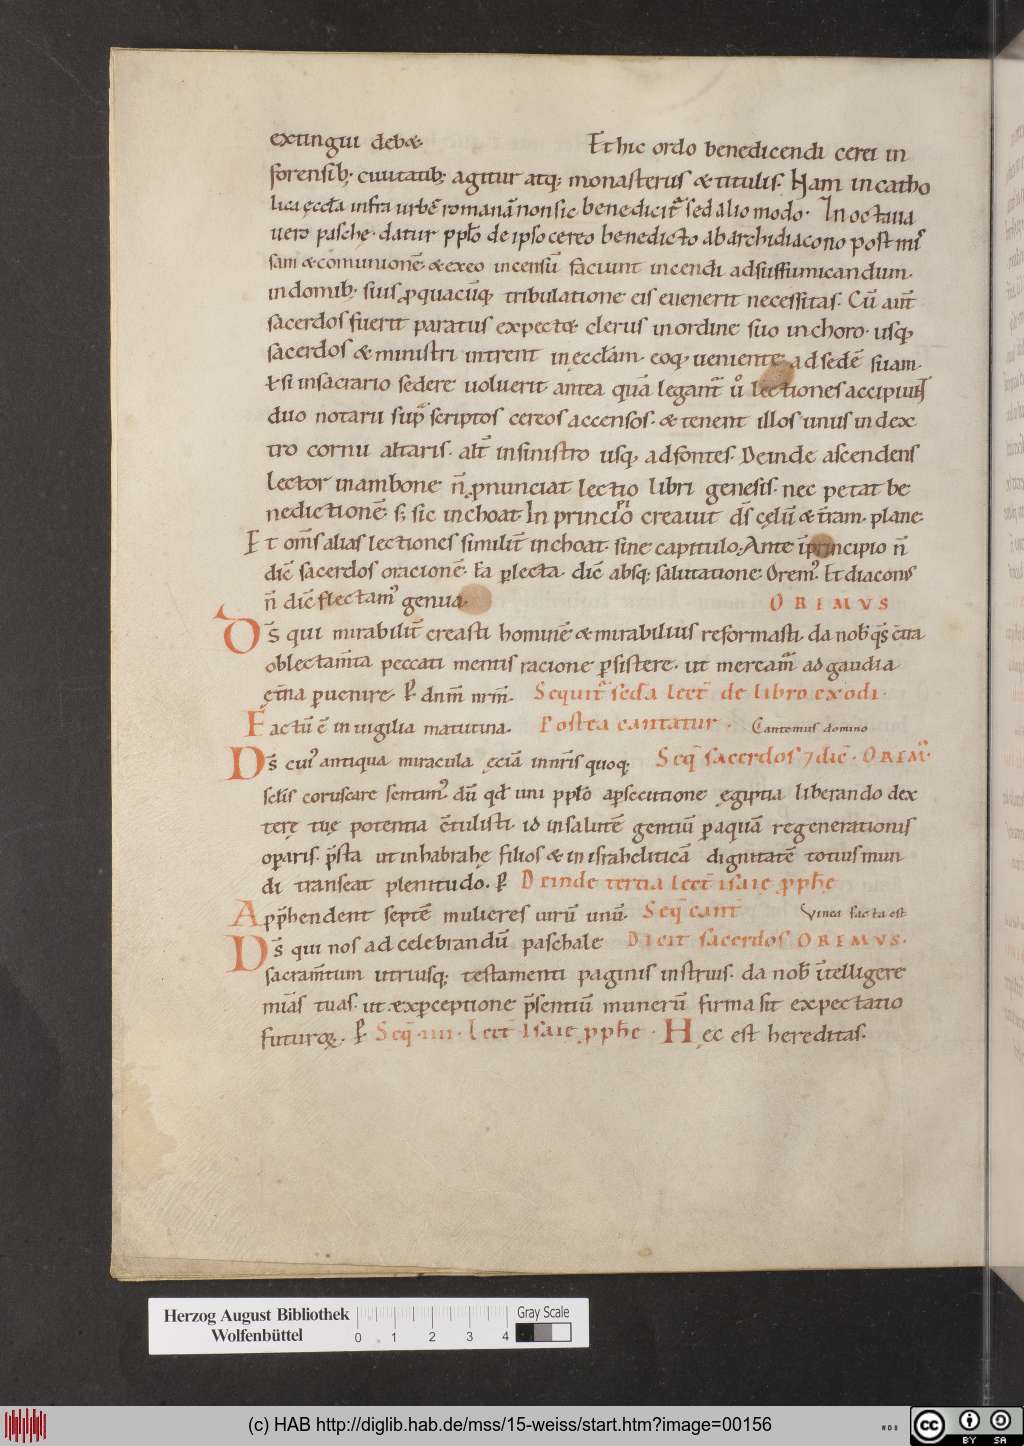 extingui debeat Et hic ordo benedicendi cerei in
forensib; ciuitatib; agitur atq; monasteriis & titulis. Nam in catho
lica ęccła infra urbē romanā non sic benedicit᷑ sed alio modo. In octaua
uero paschę. datur pplo de ipso cereo benedicto ab archidiacono post mis
sam & cōmunionē. & ex eo incensū faciunt incendi ad suffumicandum.
in domib; suis ꝓ quacūq; tribulatione eis euenerit necessitas. Cū aut̄
sacerdos fuerit paratus expect& clerus in ordine suo in choro. usq;
sacerdos & ministri intrent in ęccłam. eoq; ueniente ad sedē suam.
ł si in sacrario sedere uoluerit antea quā legant᷑ lectiones accipiunt
duo notarii sup̄scriptos cereos accensos. & tenent illos unus in dex
tro cornu altaris. alt̄ in sinistro usq; ad fontes. Deinde ascendens
lector in ambone n̄ ꝓnunciat lectio libri genesis. nec petat be
nedictionē. s; sic inchoat In principio creauit d̄s cęlū & t̄ram. plane
Et om̄s alias lectiones similit̄ inchoat. sine capitulo. Ante in principio n̄
dic̄ sacerdos orationē. Ea plecta. dic̄ absq; salutatione Orem᷒. Et diaconus
n̄ dic̄ flectam᷒ genua. OREMVS
D̄s qui mirabilit̄ creasti hominē & mirabilius reformasti. da nob̄ q̄s c̄tra
oblectam̄ta peccati mentis racione p̱sistere. ut meream᷑ ad gaudia
ęt̄na p̱uenire. P̱ dnm̄ nrm̄. Sequit᷑ scd̄a lect̄ de libro exodi.
Factū ē in uigilia matutina. Postea cantatur. Cantemus domino
D̄s cui᷒ antiqua miracula ęciā in nr̄is quoq; Seq̄ sacerdos ⁊ dic̄. OREM᷒.
sclīs coruscare sentim᷒. dū qd̄ uni pplo a p̱secutione ęgiptia liberando dex
terę tuę potentia c̄tulisti. id in salutē gentiū p̱ aquā regenerationis
op̱aris. p̄sta ut in habrahę filios & in israheliticā dignitatē totius mun
di transeat plenitudo. P̱ Deinde tertia lect̄ isaię ꝓphę
App̄hendent septē mulieres uirū unū. Seq̄ cant̄ Vinea facta est
D̄s qui nos ad celebrandū paschale Dicit sacerdos OREMVS.
sacram̄tum utriusq; testamenti paginis instruis. da nob̄ īntelligere
mīas tuas. ut ex p̱ceptione p̄sentiū munerū firma sit expectatio
futuroꝝ. P̱ Seq̄ .iiii. Lect̄ Isaię ꝓphę. Hęc est hereditas.
Herzog August Bibliothek
Wolfenbüttel
0 1 2 3 4
Gray Scale
(c) HAB http://diglib.hab.de/mss/15-weiss/start.htm?image=00156
cc BY SA